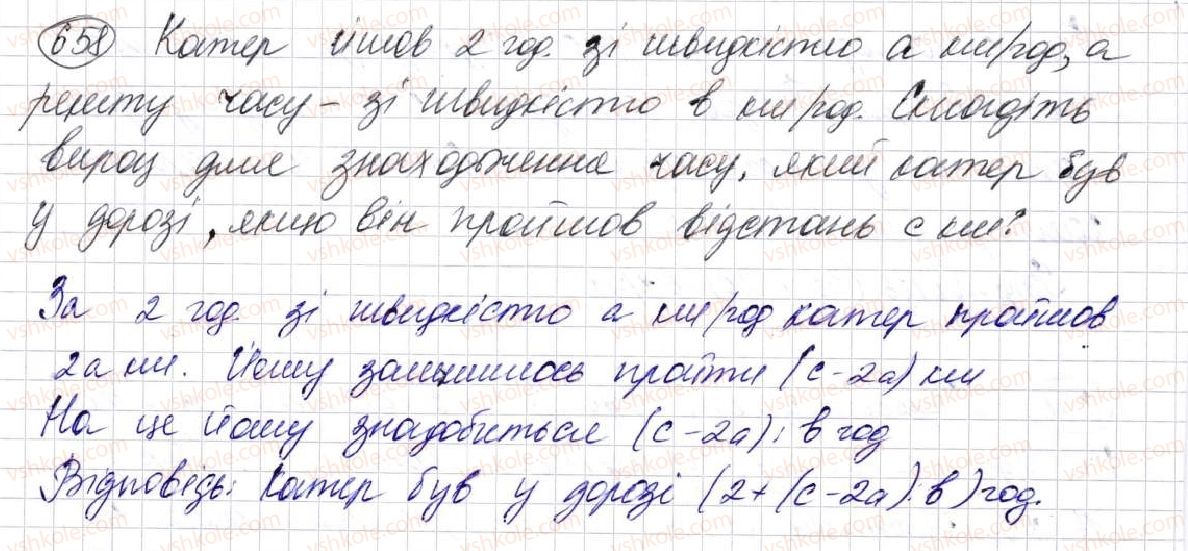 658 Катер йшов 2 год. зі швидкістю a км/год, а
решту часу – зі швидкістю в км/год. Складіть
вираз для знаходження часу, який катер був
у дорозі, якщо він пройшов відстань с км?
За 2 год зі швидкістю а км/год катер пройшов
2а км. Йому залишилось пройти (с-2а) км
На це йому знадобиться (с-2а):в год
Відповідь: Катер був у дорозі (2+(с-2а):в)год.